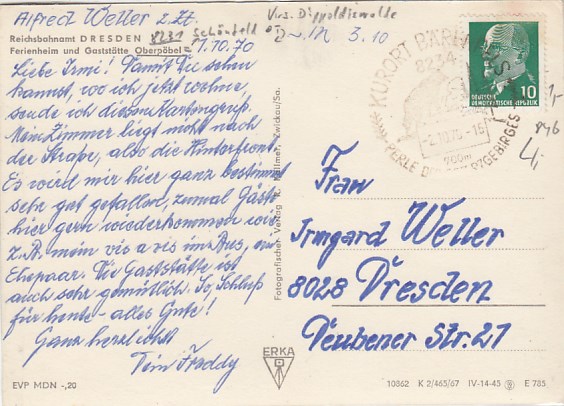 Alfred Weller z.Zt.
Reichsbahnamt DRESDEN 8231 Schönfeld
Ferienheim und Gaststätte Oberpöbel
Krs. Dippoldiswalde
1.10.70
3.10
Liebe Irmi! Damit Du sehen
kannst, wo ich jetzt wohne,
sende ich diesen Kartengruß.
Mein Zimmer liegt nicht nach
der Straße, also die Hinterfront.
Es wird mir hier ganz bestimmt
sehr gut gefallen, zumal Gäste
hier gern wiederkommen wie
z.B. mein vis a vis im Bus, ein
Ehepaar. Die Gaststätte ist
auch sehr gemütlich. So, Schluß
für heute - alles Gute!
Ganz herzlichst
Dein Freddy
EVP MDN -,20
Fotografischer Verlag R. Kallmer, Zwickau/Sa.
ERKA
KURORT BÄR
8234
PERLE D RZGEBIRGES
-2.10.70-15
760m
10
DEUTSCHE
DEMOKRATISCHE REPUBLIK
1,-
846
4,-
Frau
Irmgard Weller
8028 Dresden
Deubener Str. 27
10362 K 2/465/67 IV-14-45 9 E 735